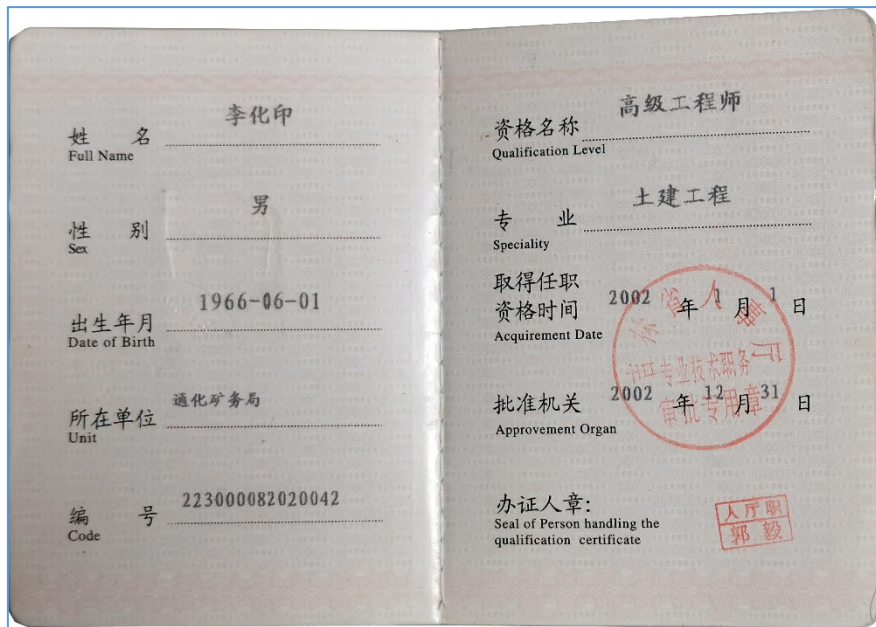 李化印
姓 名
Full Name
男
性 别
Sex
1966-06-01
出生年月
Date of Birth
通化矿务局
所在单位
Unit
223000082020042
编 号
Code
高级工程师
资格名称
Qualification Level
土建工程
专 业
Speciality
取得任职
资格时间 2002 年 1 月 1 日
Acquirement Date
批准机关 2002 年 12 月 31 日
Approvement Organ
省人事厅
专业技术职务
审批专用章
办证人章:
Seal of Person handling the
qualification certificate
人厅职
郭毅